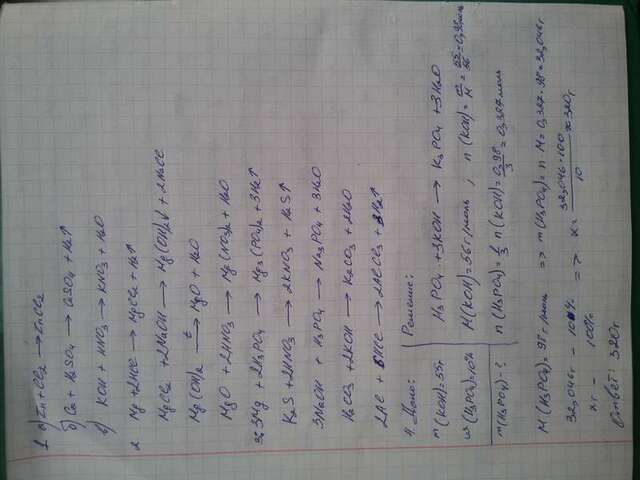 1. а) Zn + Cl2 → ZnCl2
б) Ca + H2SO4 → CaSO4 + H2↑
в) KOH + HNO3 → KNO3 + H2O
2 Mg + 2HCl → MgCl2 + H2↑
MgCl2 + 2NaOH → Mg(OH)2↓ + 2NaCl
Mg(OH)2 →t MgO + H2O
MgO + 2HNO3 → Mg(NO3)2 + H2O
3. 3Mg + 2H3PO4 → Mg3(PO4)2 + 3H2↑
K2S + 2HNO3 → 2KNO3 + H2S↑
3NaOH + H3PO4 → Na3PO4 + 3H2O
H2CO3 + 2KOH → K2CO3 + 2H2O
2Al + 6HCl → 2AlCl3 + 3H2↑
4. Дано: Решение:
m(KOH)=55г H3PO4 + 3KOH → K3PO4 + 3H2O
ω(H3PO4)=10% M(KOH)=56г/моль ; n(KOH)=m/M=55/56=0,98моль
m(H3PO4)-? n(H3PO4)=1/3 n(KOH)=0,98/3=0,327моль
M(H3PO4)=98г/моль => m(H3PO4)=n·M=0,327·98=32,046г
32,046г - 10% => x=32,046·100/10≈320г
xг - 100%
Ответ: 320г